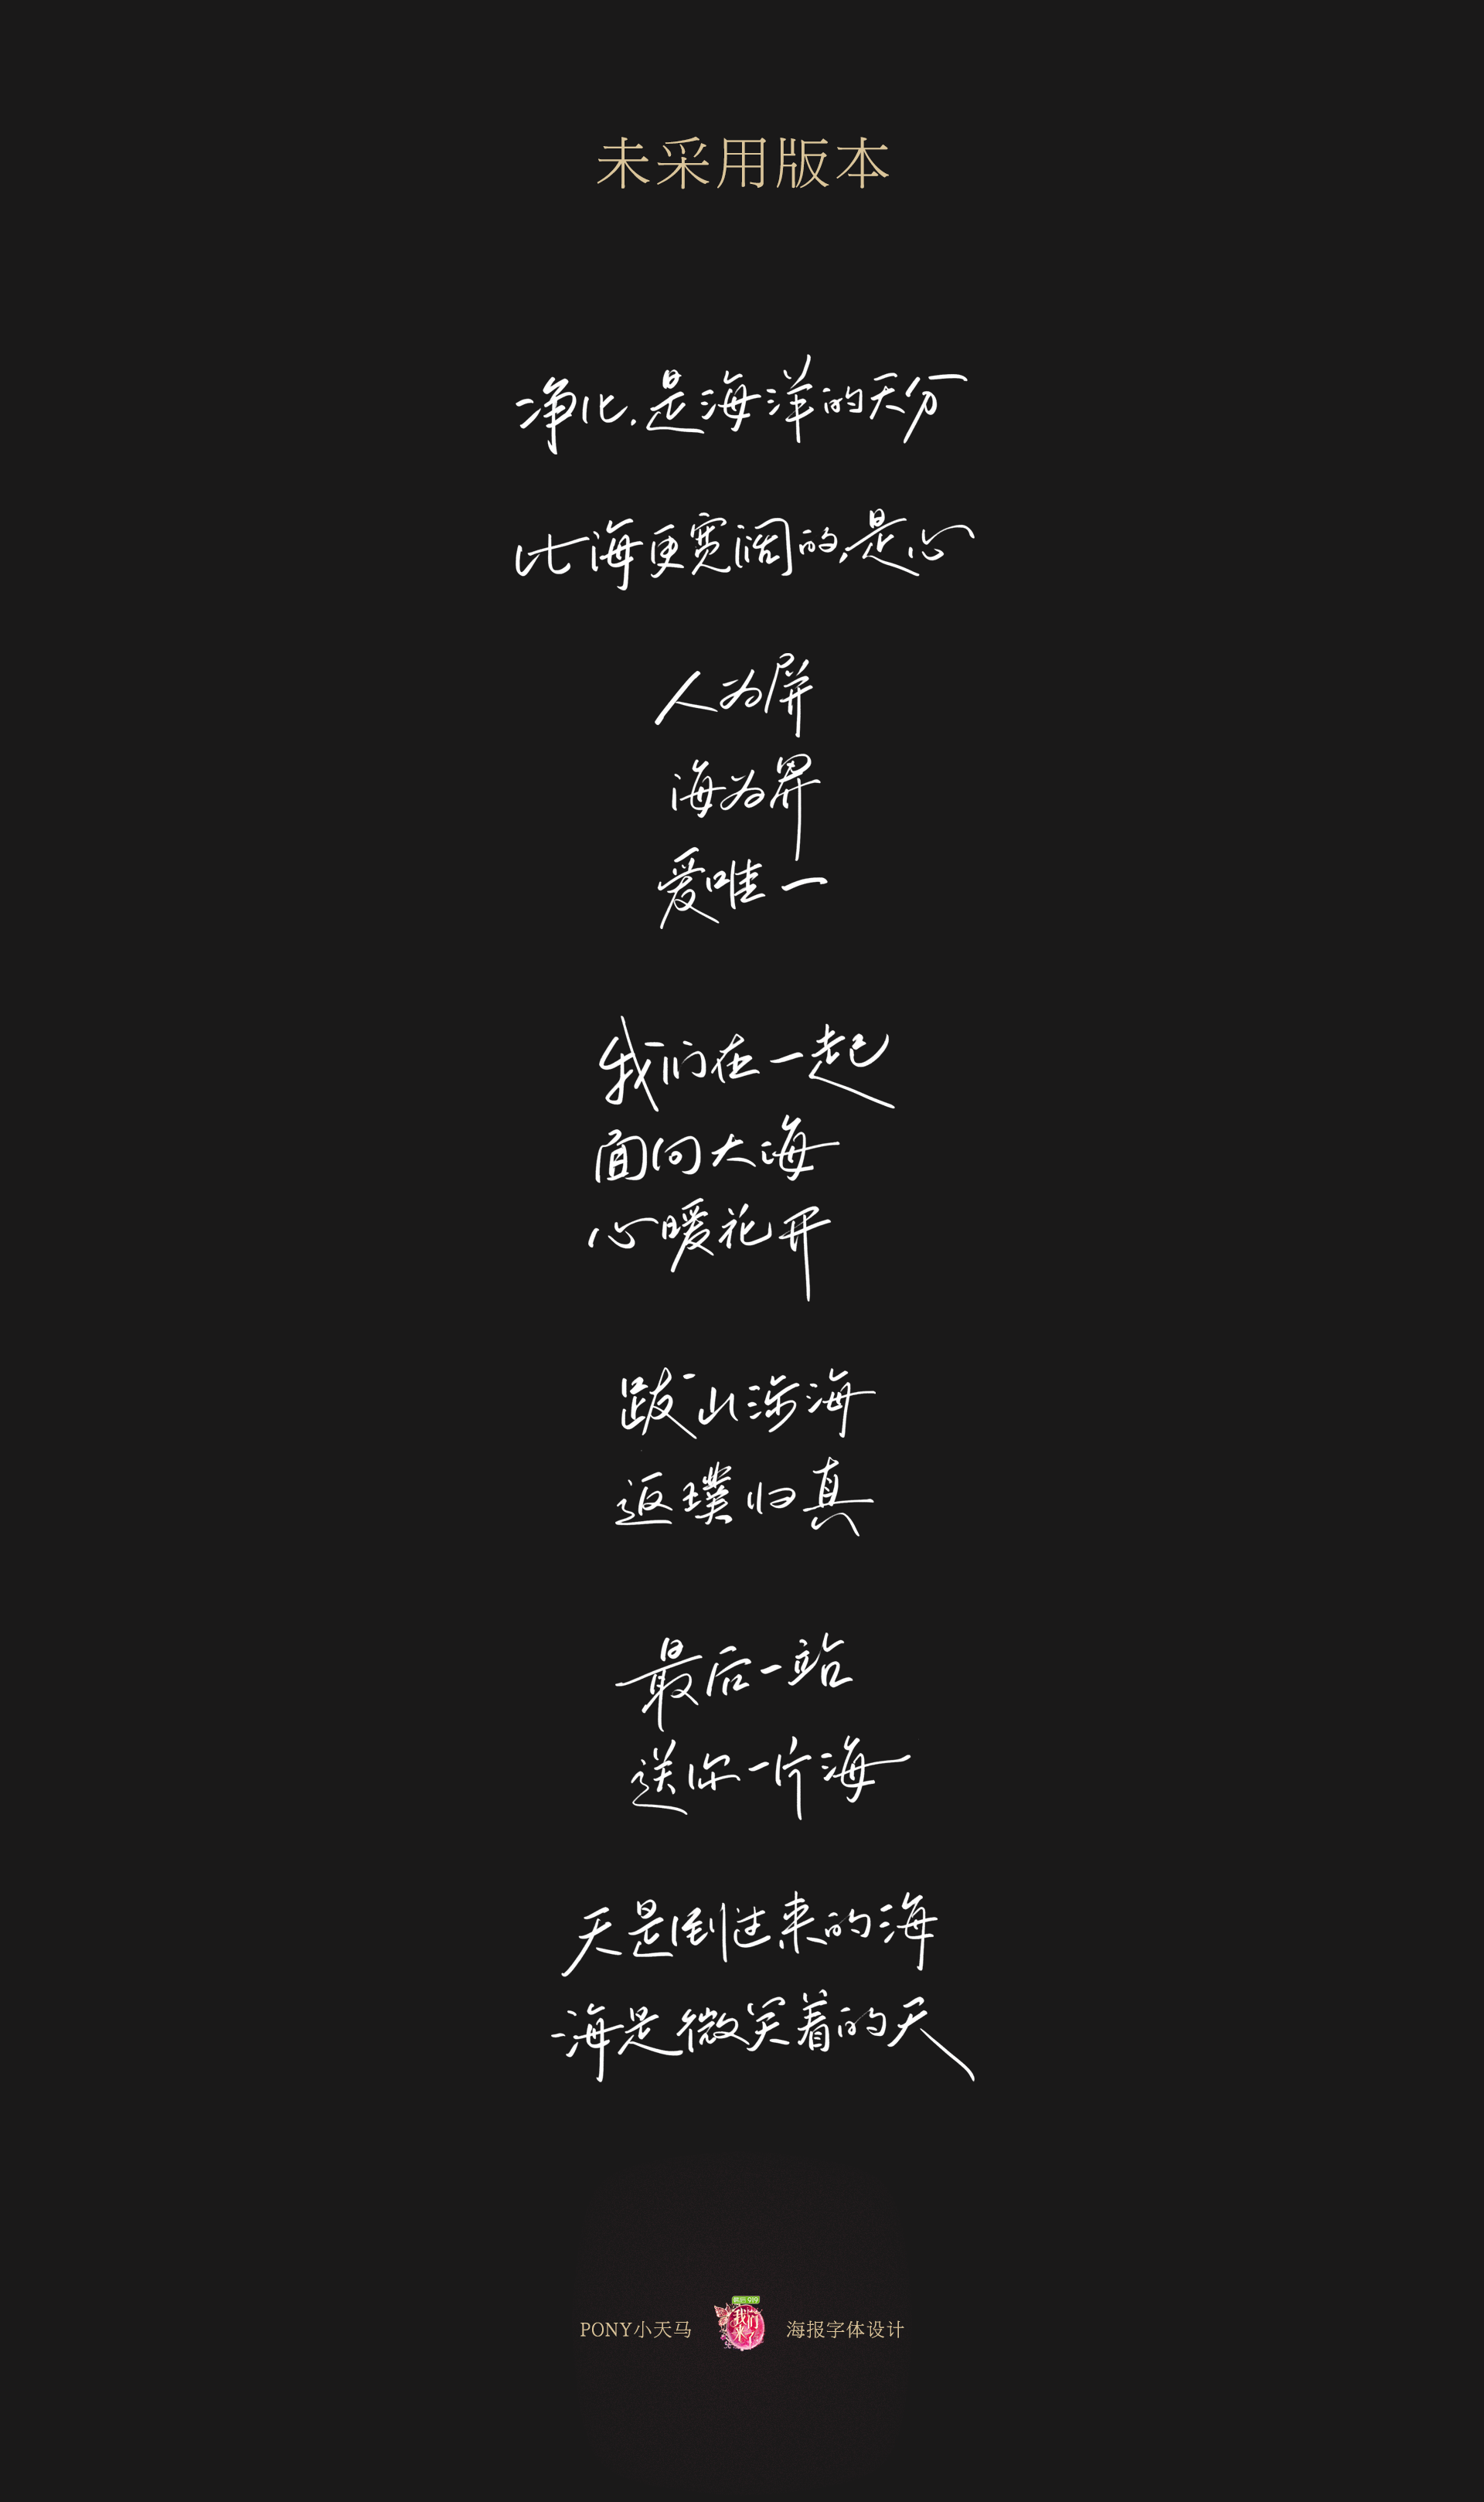 未采用版本
净化.是海洋的天分
比海更宽阔的是心
人为屏
海为界
爱唯一
我们在一起
面向大海
心暖花开
跋山涉海
返璞归真
最后一站
送你一片海
天是倒过来的海
海是微笑着的天
PONY小天马
我们来了
海报字体设计